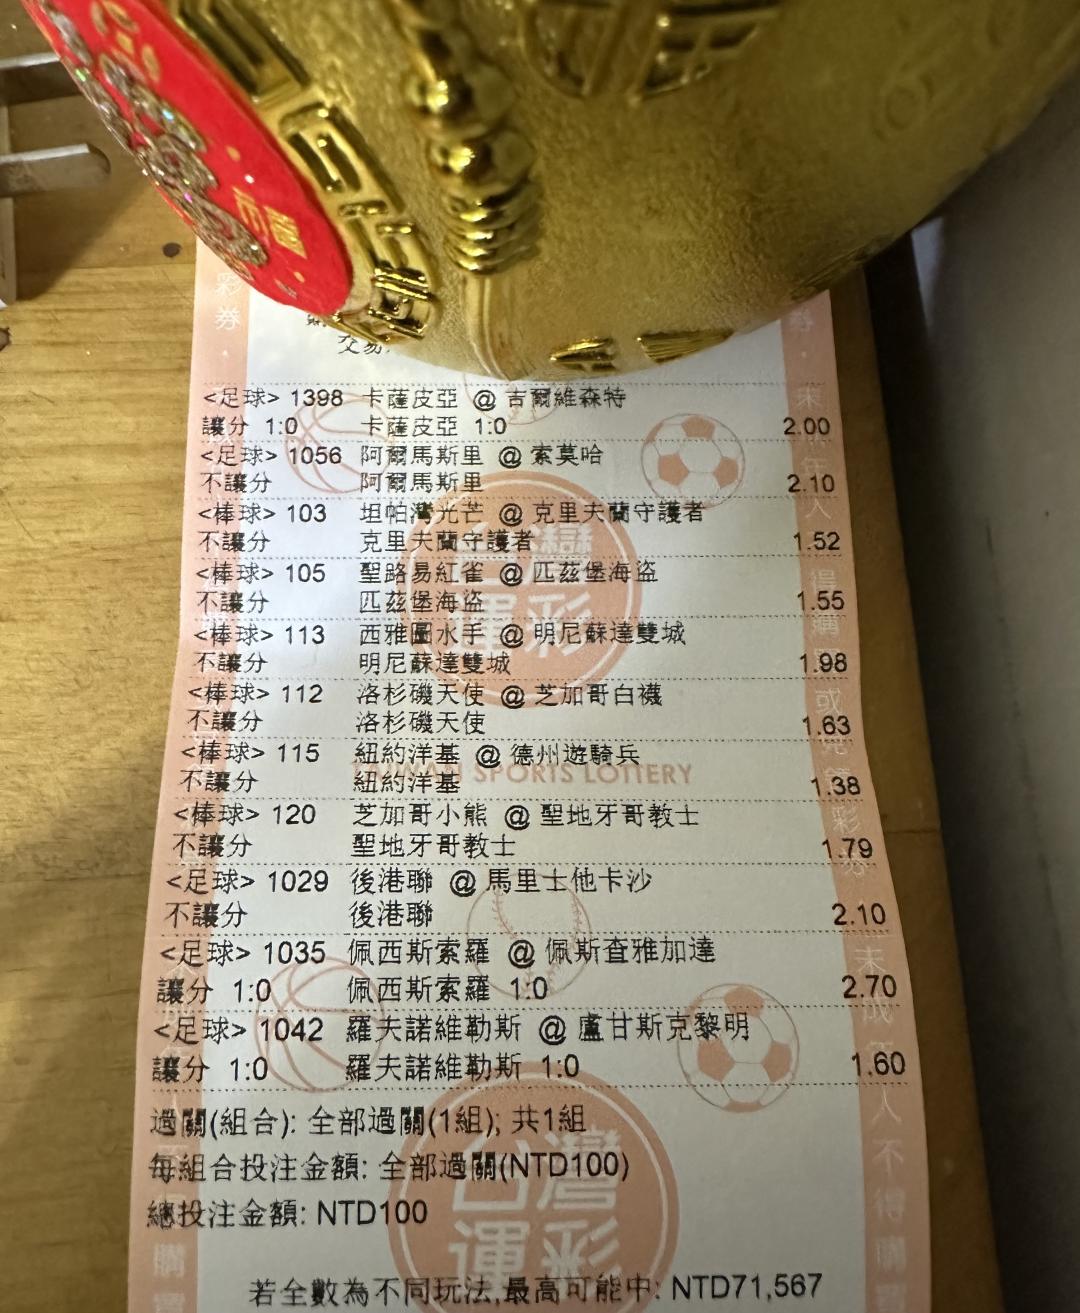 市萬
彩券
交易
<足球> 1398 卡薩皮亞 @ 吉爾維森特
讓分 1:0 卡薩皮亞 1:0 2.00
<足球> 1056 阿爾馬斯里 @ 索莫哈
不讓分 阿爾馬斯里 2.10
<棒球> 103 坦帕灣光芒 @ 克里夫蘭守護者
不讓分 克里夫蘭守護者 1.52
<棒球> 105 聖路易紅雀 @ 匹茲堡海盜
不讓分 匹茲堡海盜 1.55
<棒球> 113 西雅圖水手 @ 明尼蘇達雙城
不讓分 明尼蘇達雙城 1.98
<棒球> 112 洛杉磯天使 @ 芝加哥白襪
不讓分 洛杉磯天使 1.63
<棒球> 115 紐約洋基 @ 德州遊騎兵
不讓分 紐約洋基 1.38
TAIWAN SPORTS LOTTERY
<棒球> 120 芝加哥小熊 @ 聖地牙哥教士
不讓分 聖地牙哥教士 1.79
<足球> 1029 後港聯 @ 馬里士他卡沙
不讓分 後港聯 2.10
<足球> 1035 佩西斯索羅 @ 佩斯查雅加達
讓分 1:0 佩西斯索羅 1:0 2.70
<足球> 1042 羅夫諾維勒斯 @ 盧甘斯克黎明
讓分 1:0 羅夫諾維勒斯 1:0 1.60
過關(組合): 全部過關(1組); 共1組
每組合投注金額: 全部過關(NTD100)
總投注金額: NTD100
台灣運彩
若全數為不同玩法,最高可能中: NTD71,567